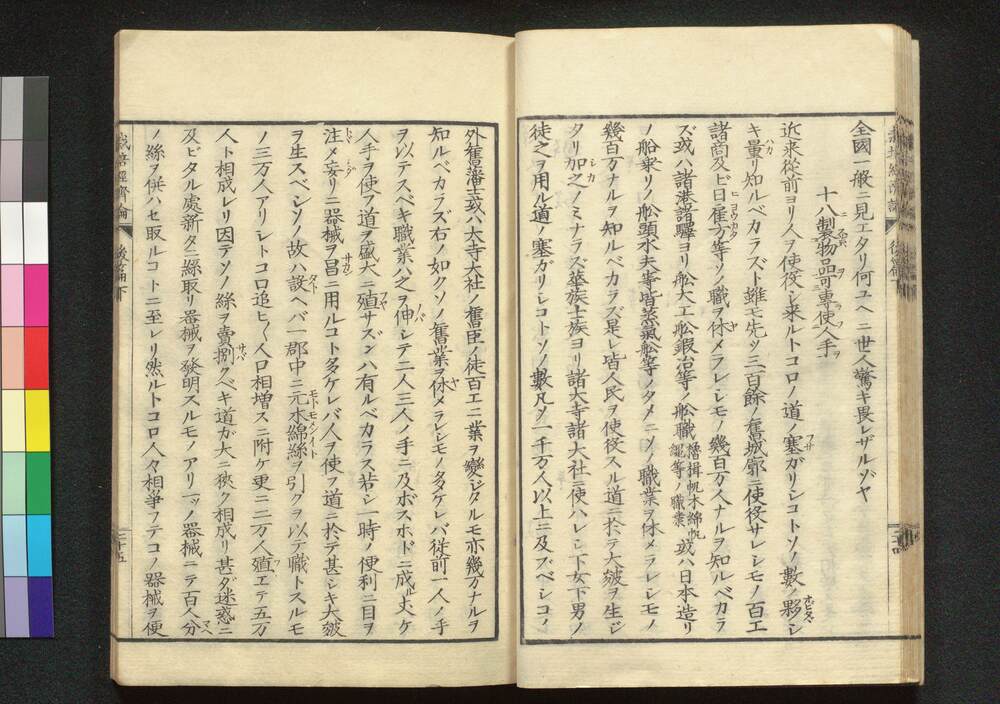 全國一般ニ見エタリ何ユヘニ世人驚キ畏レザルゾヤ
十八製物品可專使人手
近來從前ヨリ人ヲ使役シ来ルトコロノ道ノ塞ガリシコトソノ數ノ夥シ
キ量リ知ルベカラズト雖モ先ヅ三百餘ノ舊城郭ニ使役サレシモノ百工
諸商及ビ日雇方等ソノ職ヲ休メラレシモノ幾百万人ナルヲ知ルベカラ
ズ或ハ諸港諸驛ヨリ舩大工舩鍛冶等ノ舩職櫓楫帆木綿帆縄等ノ職業或ハ日本造リ
ノ舩乗リノ舩頭水夫等皆蒸氣舩等ノタメニソノ職業ヲ休メラレシモノ
幾百万ナルヲ知ルベカラズ是レ皆人民ヲ使役スル道ニ於テ大皷ヲ生ジ
タリ加之ノミナラズ華族士族ヨリ諸大寺諸大社ニ使ハレシ下女下男ノ
徒之ヲ用ル道ノ塞ガリシコトソノ數凡ソ一千万人以上ニ及ブベシコノ
外舊藩士或ハ大寺大社ノ舊臣ノ徒百エニ業ヲ變ジタルモ亦幾万ナルヲ
知ルベカラズ右ノ如クソノ舊業ヲ休メラレシモノ多ケレバ從前一人ノ手
ヲ以テスベキ職業ハ之ヲ伸シテ二人三人ノ手ニ及ボスホドニ成ル丈ケ
人手ヲ使フ道ヲ盛大ニ殖サズンハ有ルベカラス若シ一時ノ便利ニ目ヲ
注メ妄リニ器械ヲ昌ニ用ルコト多ケレバ人ヲ使フ道ニ於テ甚シキ大皷
ヲ生スベシソノ故ハ設ヘバ一郡中ニ元木綿絲ヲ引クヲ以テ職トスルモ
ノ三万人アリシトコロ追ヒ〱人口相增スニ附ケ更ニ二万人殖エテ五万
人ト相成レリ因テソノ絲ヲ賣捌クベキ道ガ大ニ狹ク相成リ甚ダ迷惑ニ
及ビタル處新タニ絲取リ器械ヲ發明スルモノアリ一ッノ器械ニテ百人分
ノ絲ヲ供ハセ取ルコトニ至レリ然ルトコロ人々相爭フテコノ器械ヲ使
栽培經濟論
後篇下
二十五